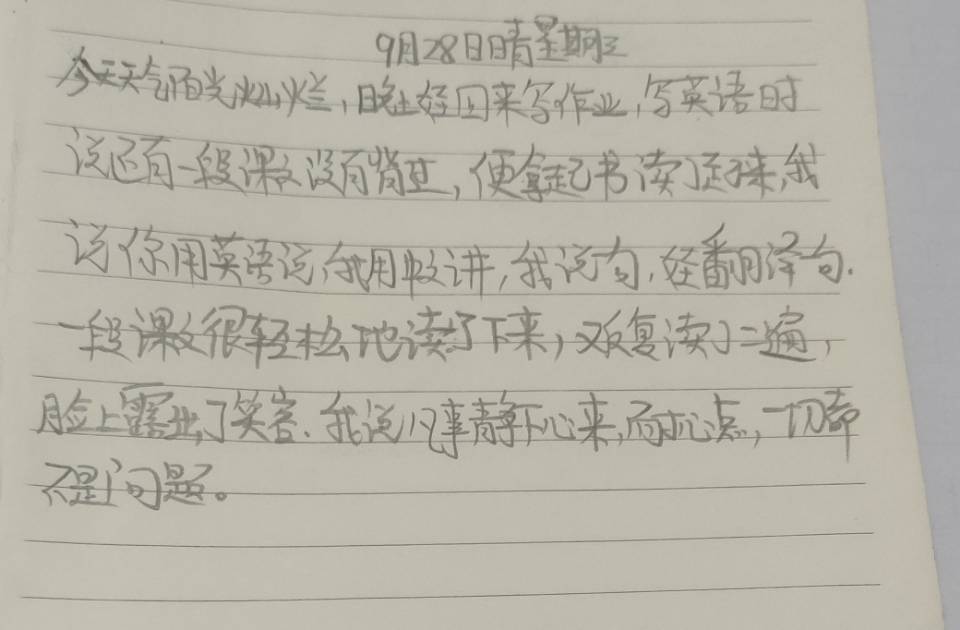 9月28日晴星期三
今天天气阳光灿烂,晚上侄回来写作业,写英语时
说还有一段课文没有背过,便拿起书读了起来,我
说你用英语说,我用中文讲,我说句,侄翻译句.
一段课文很轻松地读了下来,又反复读了二遍,
脸上露出了笑容.我说凡事静下心来,耐心点,一切都
不是问题。